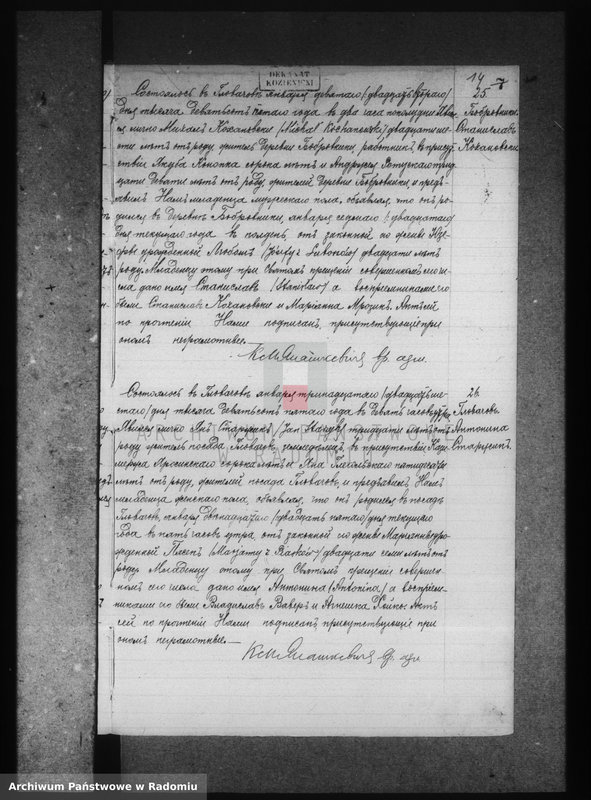 14
7
DEKANAT
KOZIENICKI
25
Бобровники
Станиславъ
Кохановски
Состоялось въ Гловачовѣ января девятаго /двадцать втораго/
дня тысяча девятьсотъ пятаго года въ два часа пополудни. Яви-
ся лично Михаилъ Кохановски /Michał Kochanowski/ двадцати ше-
сти лѣтъ отъ роду, житель деревни Бобровники, работникъ, въ присут-
ствіи Якуба сорока лѣтъ и Андрея трид-
цати девяти лѣтъ отъ роду, жителей деревни Бобровники, и предъ-
явилъ Намъ младенца мужескаго пола, объявляя, что онъ ро-
дился въ деревнѣ Бобровники, января седьмаго /двадцатаго/
дня текущаго года въ полдень, отъ законной его жены Юзе-
фы урожденной /Józefy z / двадцати лѣтъ
роду. Младенцу этому при Святомъ крещеніи совершенномъ его и-
мя дано имя Станиславъ /Stanisław/ а воспріемниками его
были Станиславъ Кохановски и Маріанна Мрозикъ. Актъ сей
по прочтеніи Нами подписанъ, присутствующіе при
ономъ неграмотные.
26.
Гловачовъ
Антонина
Старженъ.
Состоялось въ Гловачовѣ января тринадцатаго /двадцать ше-
стаго/ дня тысяча девятьсотъ пятаго года въ девять часовъ утра.
Явился лично Янъ /Jan / тридцати лѣтъ отъ
роду житель посада Гловачовъ, земледѣлецъ, въ присутствіи Кази-
мера сорока лѣтъ и Яна пятидесяти
лѣтъ отъ роду, жителей посада Гловачовъ, и предъявилъ Намъ
младенца женскаго пола, объявляя, что онъ родился въ посадѣ
Гловачовъ, января двенадцатаго /двадцать пятаго/ дня текущаго
года въ пять часовъ утра, отъ законной его жены Маріанны уро-
жденной /Maryanny z / двадцати семи лѣтъ отъ
роду. Младенцу этому при Святомъ крещеніи совершен-
номъ сего числа дано имя Антонина /Antonina/ а воспріем-
никами его были Владиславъ и Агнешка Актъ
сей по прочтеніи Нами подписанъ присутствующіе при
ономъ неграмотные.
Archiwum Państwowe w Radomiu